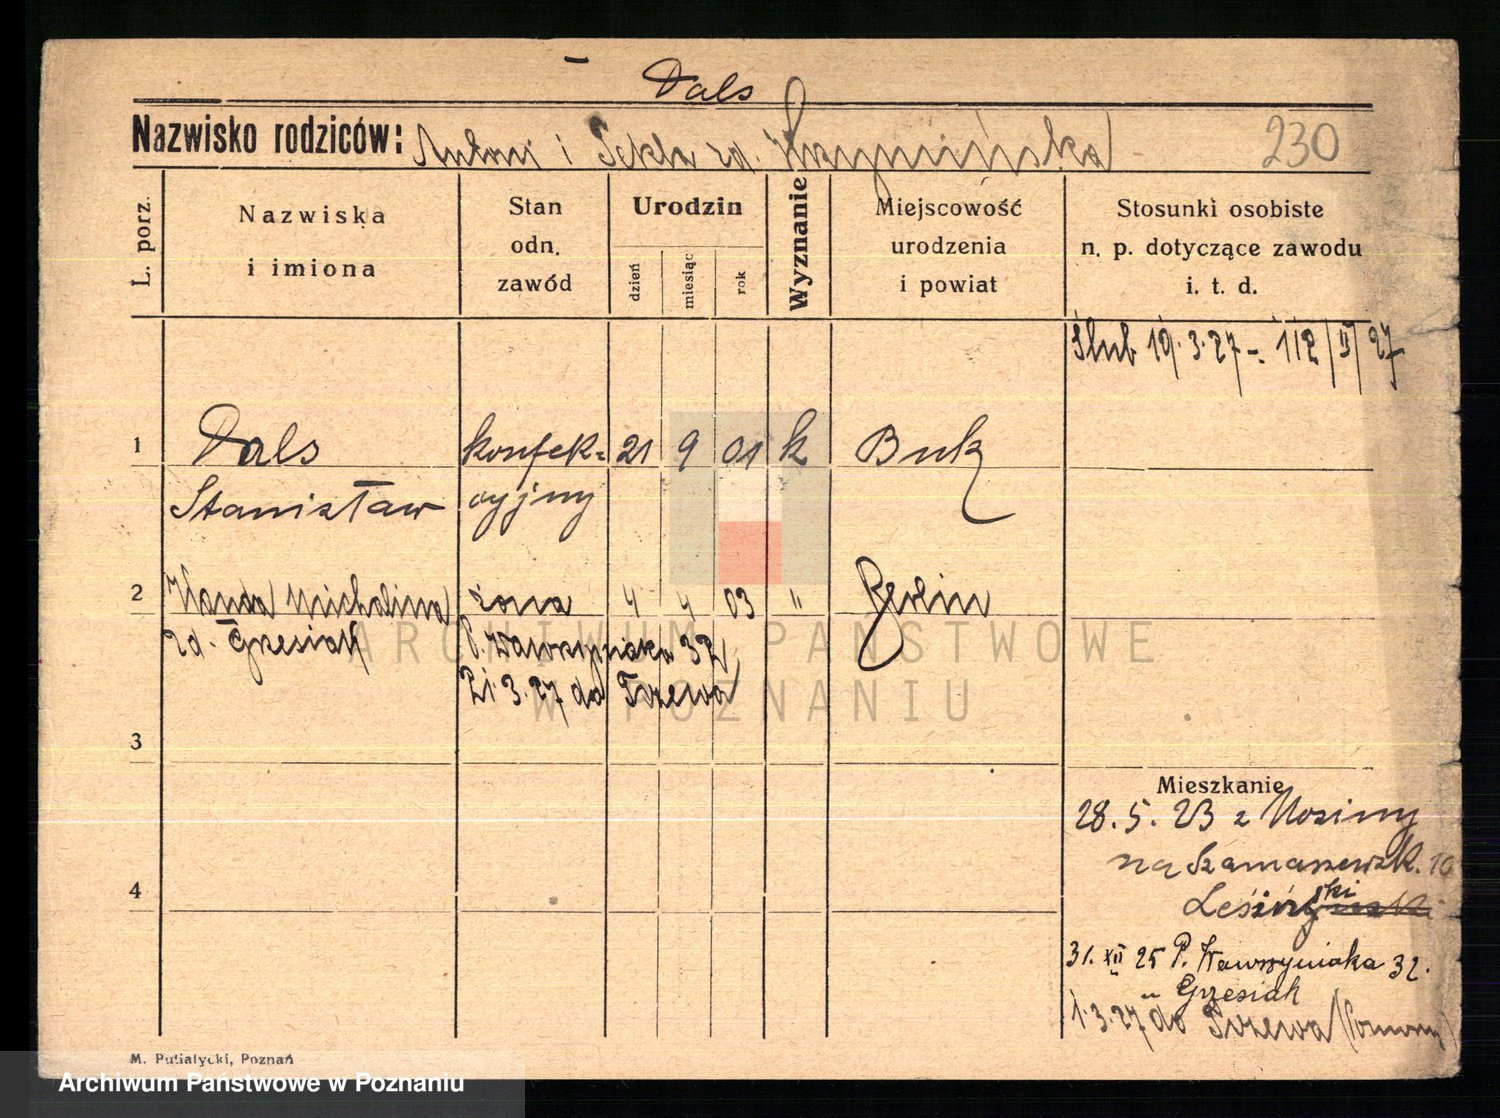 Dals
Nazwisko rodziców: Antoni i Tekla zd.
230
L. porz.
Nazwiska
i imiona
Stan
odn.
zawód
Urodzin
dzień
miesiąc
rok
Wyznanie
Miejscowość
urodzenia
i powiat
Stosunki osobiste
n. p. dotyczące zawodu
i. t. d.
Ślub 19.3.27 - 112/II/27
1 Dals konfek= 21 9 01 k Buk
Stanisław cyjny
2 Wanda Michalina żona 4 4 03 " Berlin
zd. Grzesiak P. Wawrzyniaka 32
21.3.27 do Tczewa
3
Mieszkanie
28.5.23 z
na Szamarzewsk. 10
4
Lesiński
31. XII 25 P. Wawrzyniaka 32.
Grzesiak
1.3.27 do Tczewa
M. Putiatycki, Poznań
ARCHIWUM PAŃSTWOWE
W POZNANIU
Archiwum Państwowe w Poznaniu